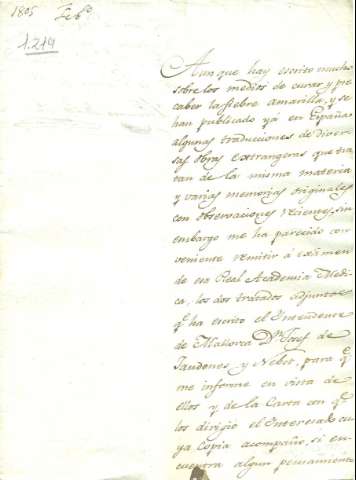 1805 Feb.º
1.214
Aunque hay escrito mucho
sobre los medios de curar, y pre
caber la fiebre amarilla, y se
han publicado yá en España
algunas traducciones de diver
sas obras extrangeras que tra
tan de la misma materia
y varias memorias originales
con observaciones recientes, sin
embargo me ha parecido con
veniente remitir á exámen
de esa Real Academia Medi
ca, los dos tratados adjuntos
q.e ha escrito el Intendente
de Mallorca Dn. Josef de
Jaudenes y Nebot, para q.e
me informe en vista de
ellos y de la Carta con q.e
los dirigio el Interesado cu
ya copia acompaño, si en
cuentra algun pensamiento